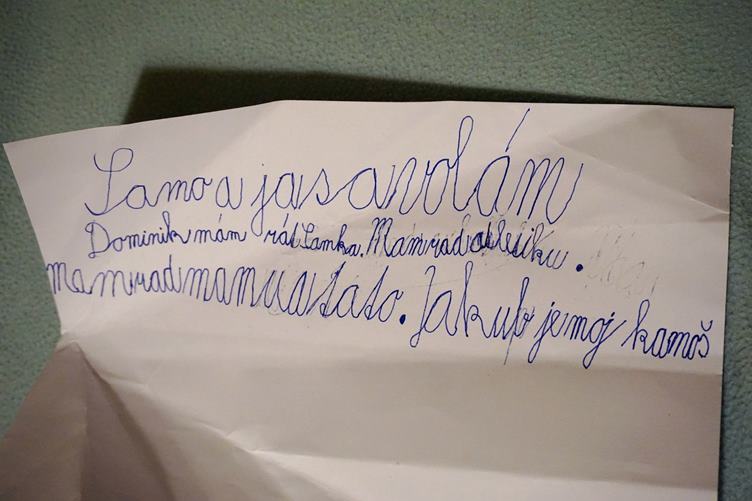 Samo a ja sa volám
Dominik mám rád Samka. Mam rad
mam rad mamu a tato. Jakub je moj kamoš